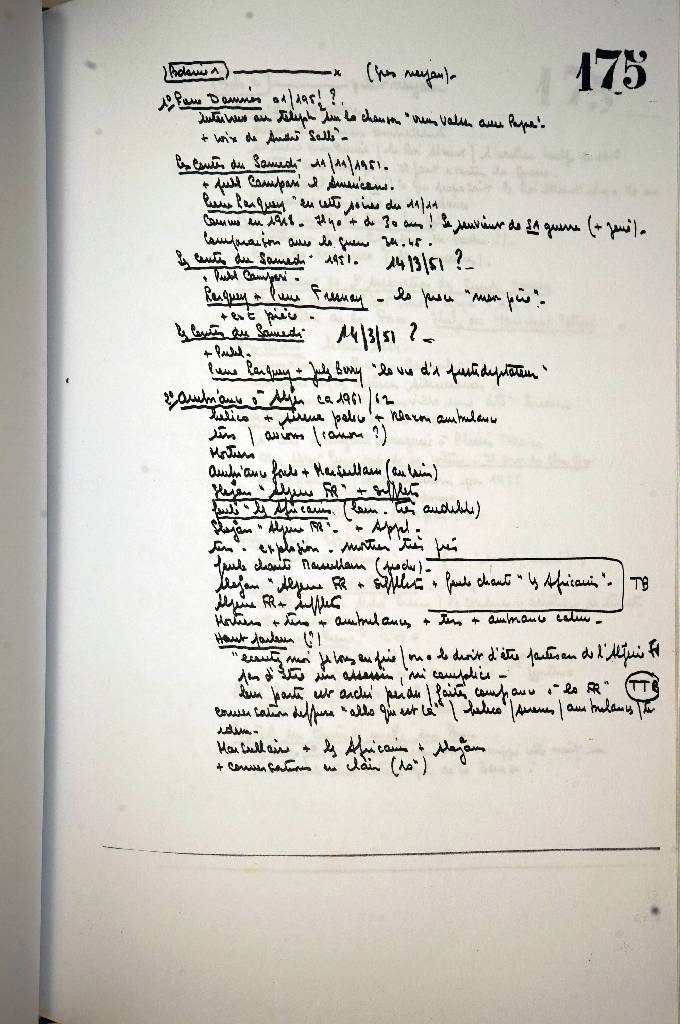 175
Bobine 1 x (très moyen).
1° 01/1951 ?
Interview au téléph sur la chanson "
+ voix de André Salle -
Les Contes du Samedi 11/11/1951.
+ publ Campari l'Américano.
Pierre Larquey "en cette soirée du 11/11
comme en 1918 - Il y a + de 30 ans ! Se souvient de SA guerre (+
Comparaison avec la guerre 39.45.
Les Contes du Samedi 1951. 14/3/51 ? -
+ Publ Campari -
Larquey + Pierre Fresnay - la pièce "mon père".
+ pièce -
Les Contes du Samedi 14/3/51 ? -
+ Publ.
Pierre Larquey + Jules Berry "la vie d'1
2° Ambiance d'Alger ca 1961/62
hélico + sirène police + klaxon ambulance
tirs / avions (canon ?)
Mortiers
Ambiance foule + Marseillaise (au loin)
Slogan "Algérie FR" + sifflets
foule "les Africains" (loin. très audible)
Slogan "Algérie FR". + Appl.
tirs - explosion - mortier très près
foule chante Marseillaise
Slogan "Algérie FR + Sifflets + foule chante "les Africains". TB
Algérie FR + sifflets
Mortiers + tirs + ambulances + tirs + ambiance calme -
Haut parleur (!)
"écoutez moi je vous en prie / on a le droit d'être partisan de l'Algérie FR
pas d'être un assassin, ni complice -
leur partie est archi perdue / faites confiance à "la FR" TTB
conversation "allo qui est là" / hélico / sirènes / ambulances /
idem -
Marseillaise + les Africains + slogans
+ conversations en clair